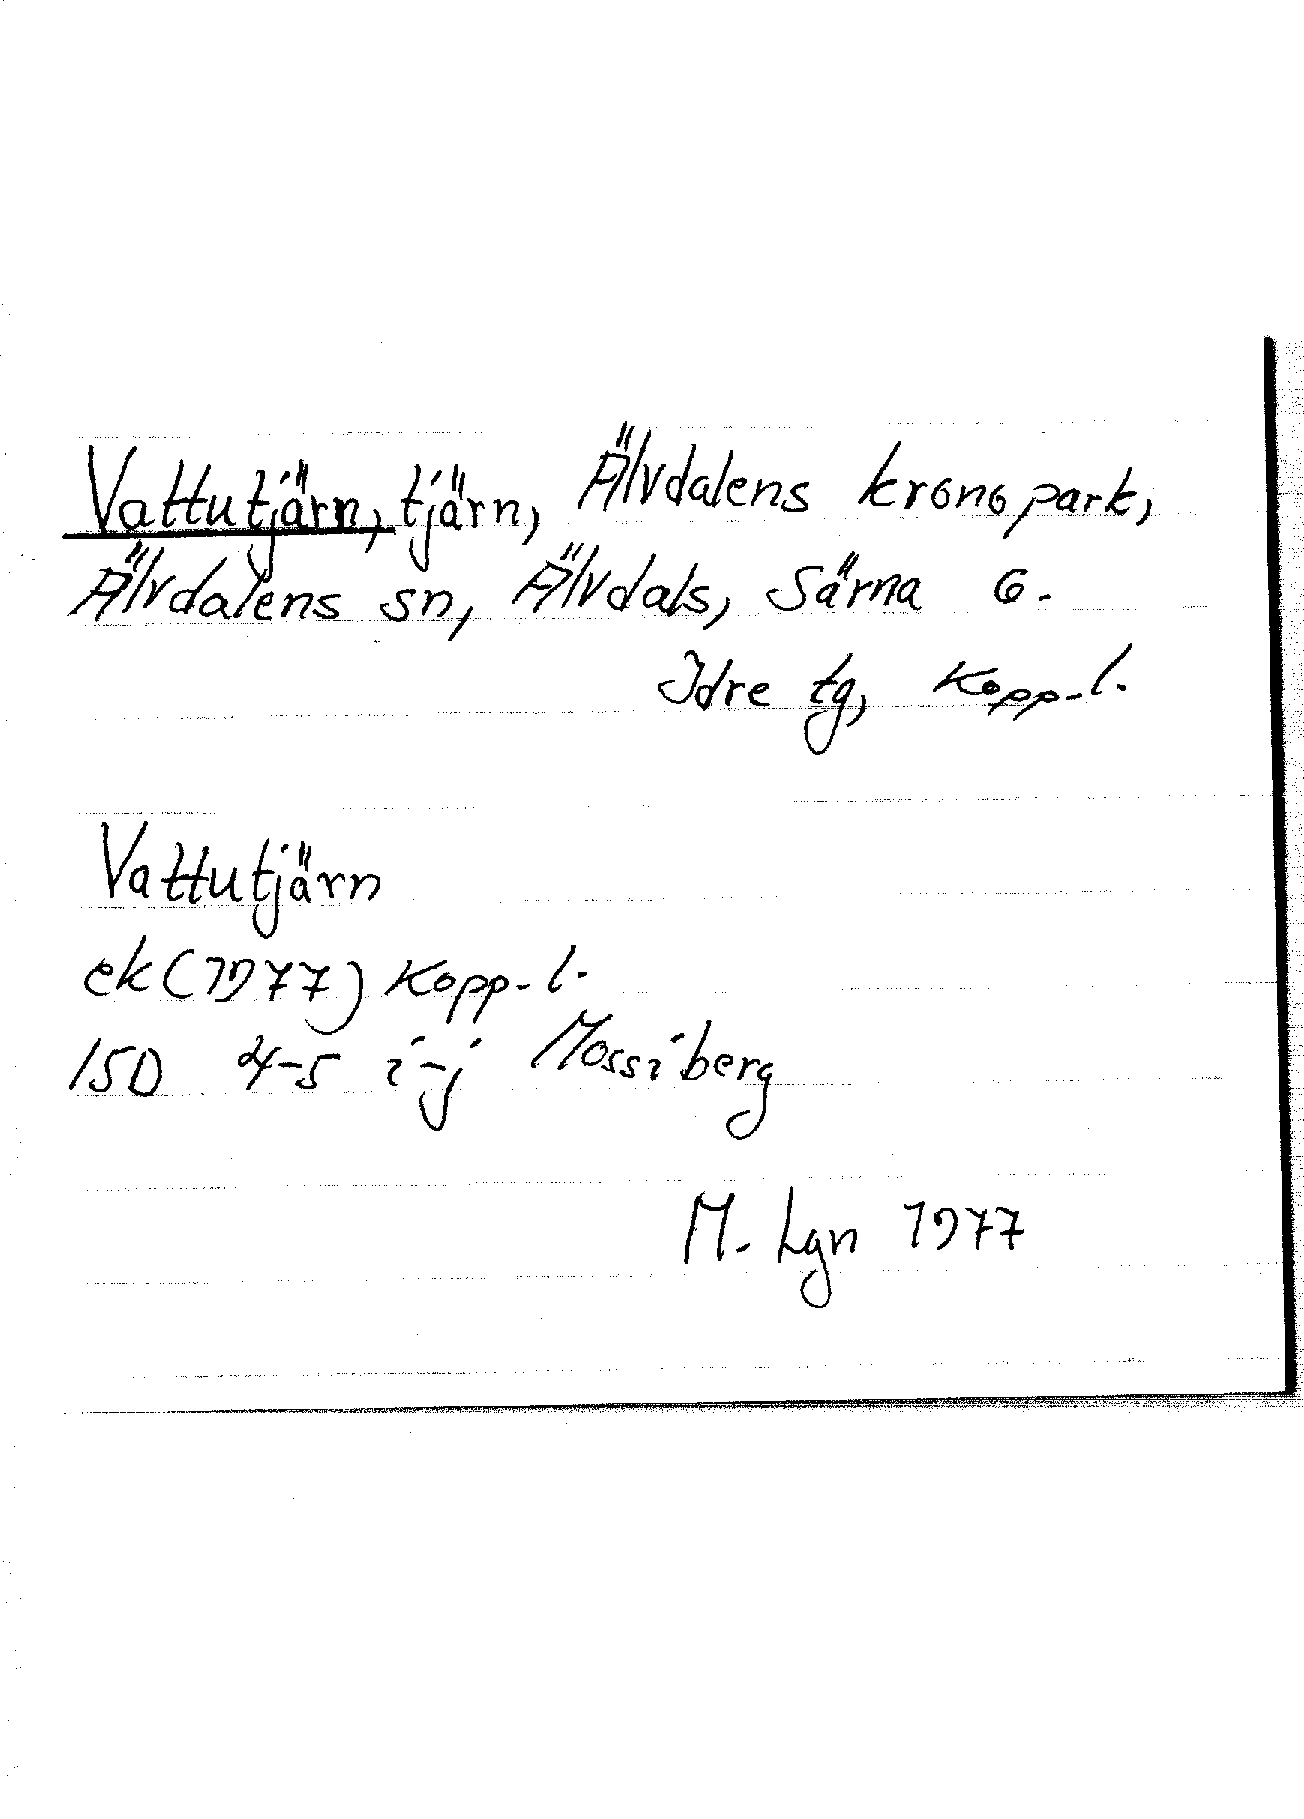 Vattutjärn, tjärn, Älvdalens kronopark,
Älvdalens sn, Älvdals, Särna o.
Idre tg, Kopp-l.
Vattutjärn
ek (1977) Kopp-l.
15D 4-5 i-j Mossiberg
M. Lgn 1977